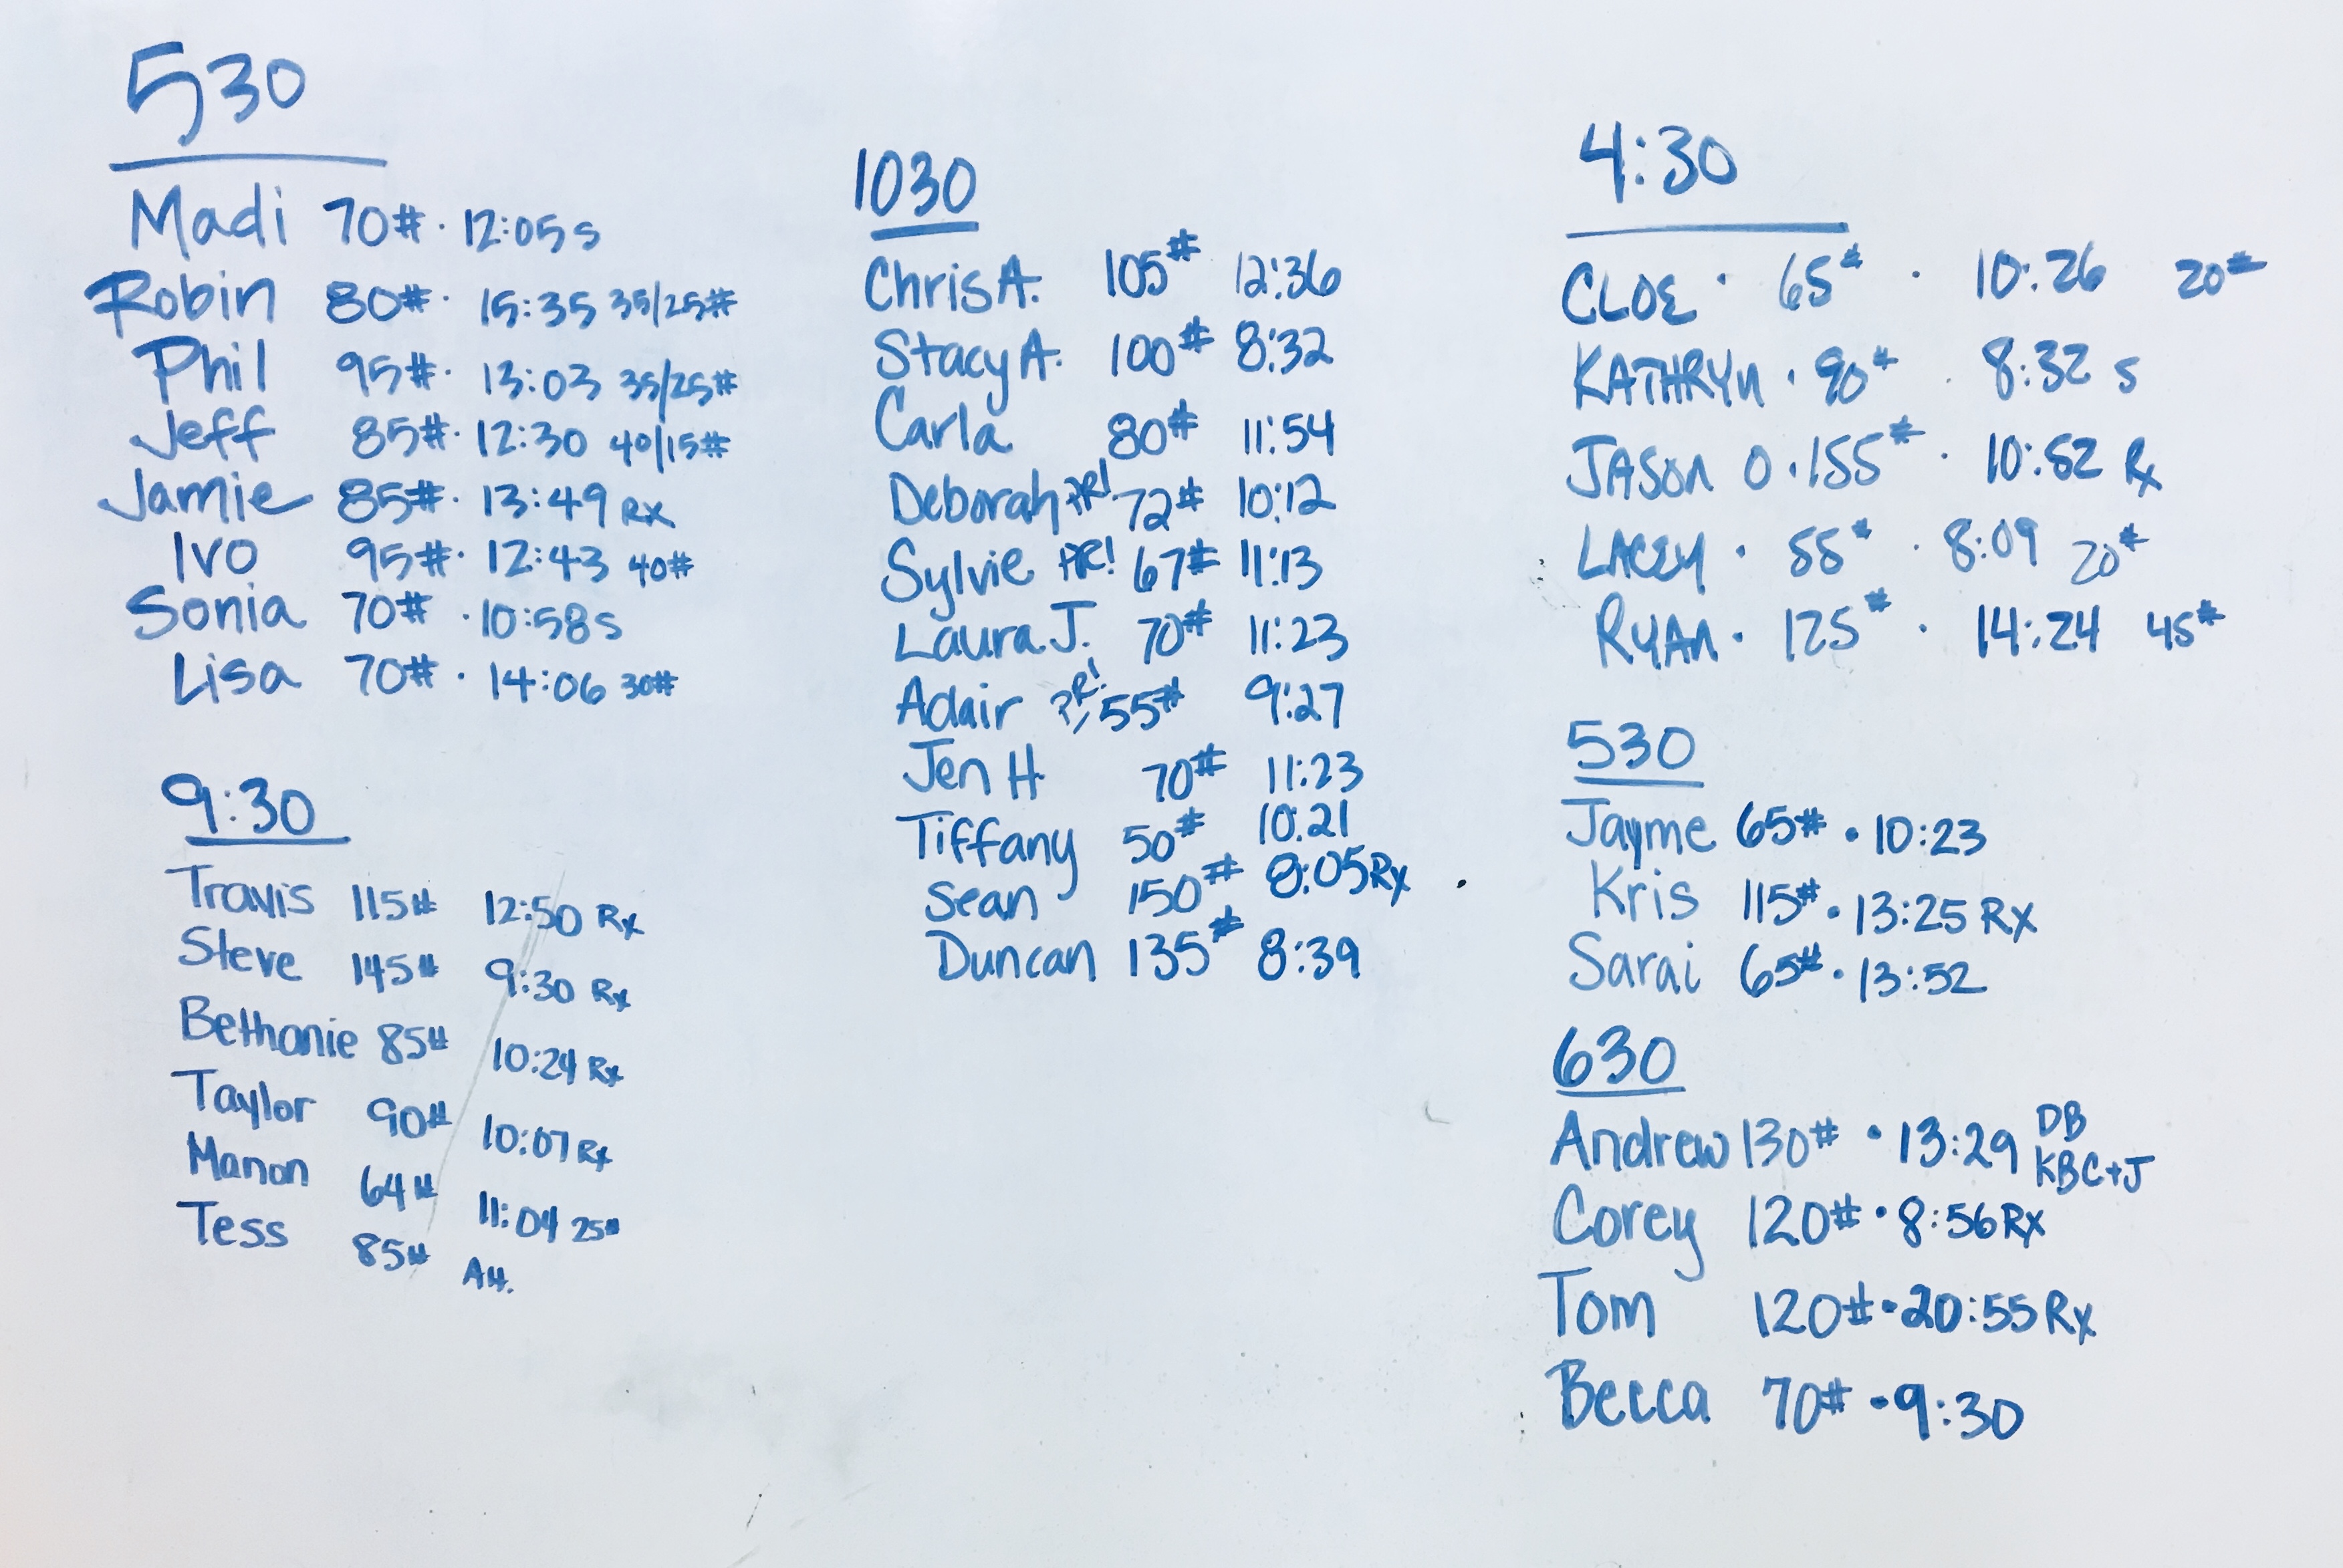 530
Madi 70# · 12:05 s
Robin 80# · 15:35 35/25#
Phil 95# · 13:03 35/25#
Jeff 85# · 12:30 40/15#
Jamie 85# · 13:49 Rx
Ivo 95# · 12:43 40#
Sonia 70# · 10:58 s
Lisa 70# · 14:06 30#
9:30
Travis 115# 12:50 Rx
Steve 145# 9:30 Rx
Bethanie 85# 10:24 Rx
Taylor 90# 10:07 Rx
Manon 64# 11:04 25#
Tess 85# Alt.
1030
Chris A. 105# 12:36
Stacy A. 100# 8:32
Carla 80# 11:54
Deborah PR! 72# 10:12
Sylvie PR! 67# 11:13
Laura J. 70# 11:23
Adair PR! 55# 9:27
Jen H 70# 11:23
Tiffany 50# 10:21
Sean 150# 8:05 Rx
Duncan 135# 8:39
4:30
CLOE · 65# · 10:26 20#
KATHRYN · 90# · 8:32 s
JASON O · 155# · 10:52 Rx
LACEY · 55# · 8:09 20#
RYAN · 125# · 14:24 45#
530
Jayme 65# · 10:23
Kris 115# · 13:25 Rx
Sarai 65# · 13:52
630
Andrew 130# · 13:29 DB KBC+J
Corey 120# · 8:56 Rx
Tom 120# · 20:55 Rx
Becca 70# · 9:30